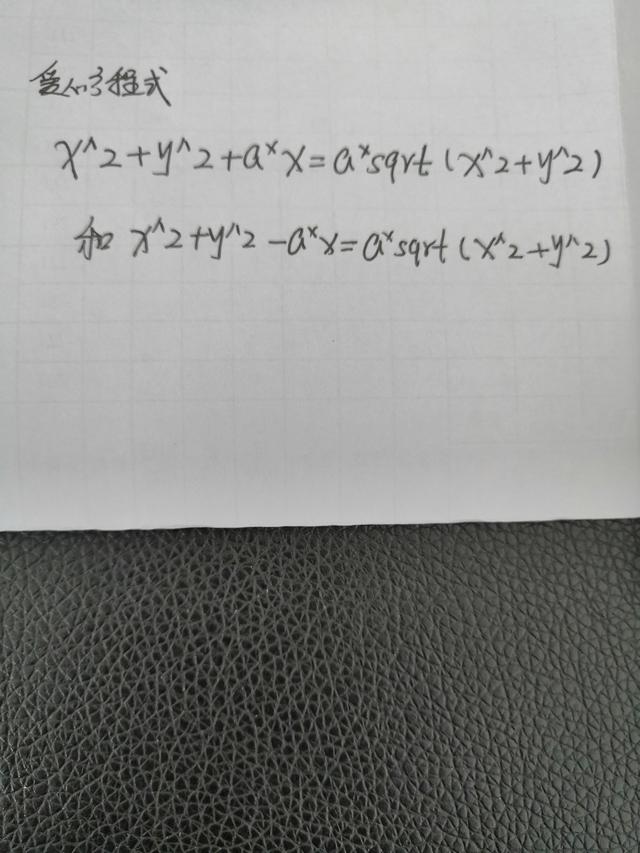 爱的方程式
x^2+y^2+a*x=a*sqrt(x^2+y^2)
和 x^2+y^2-a*x=a*sqrt(x^2+y^2)